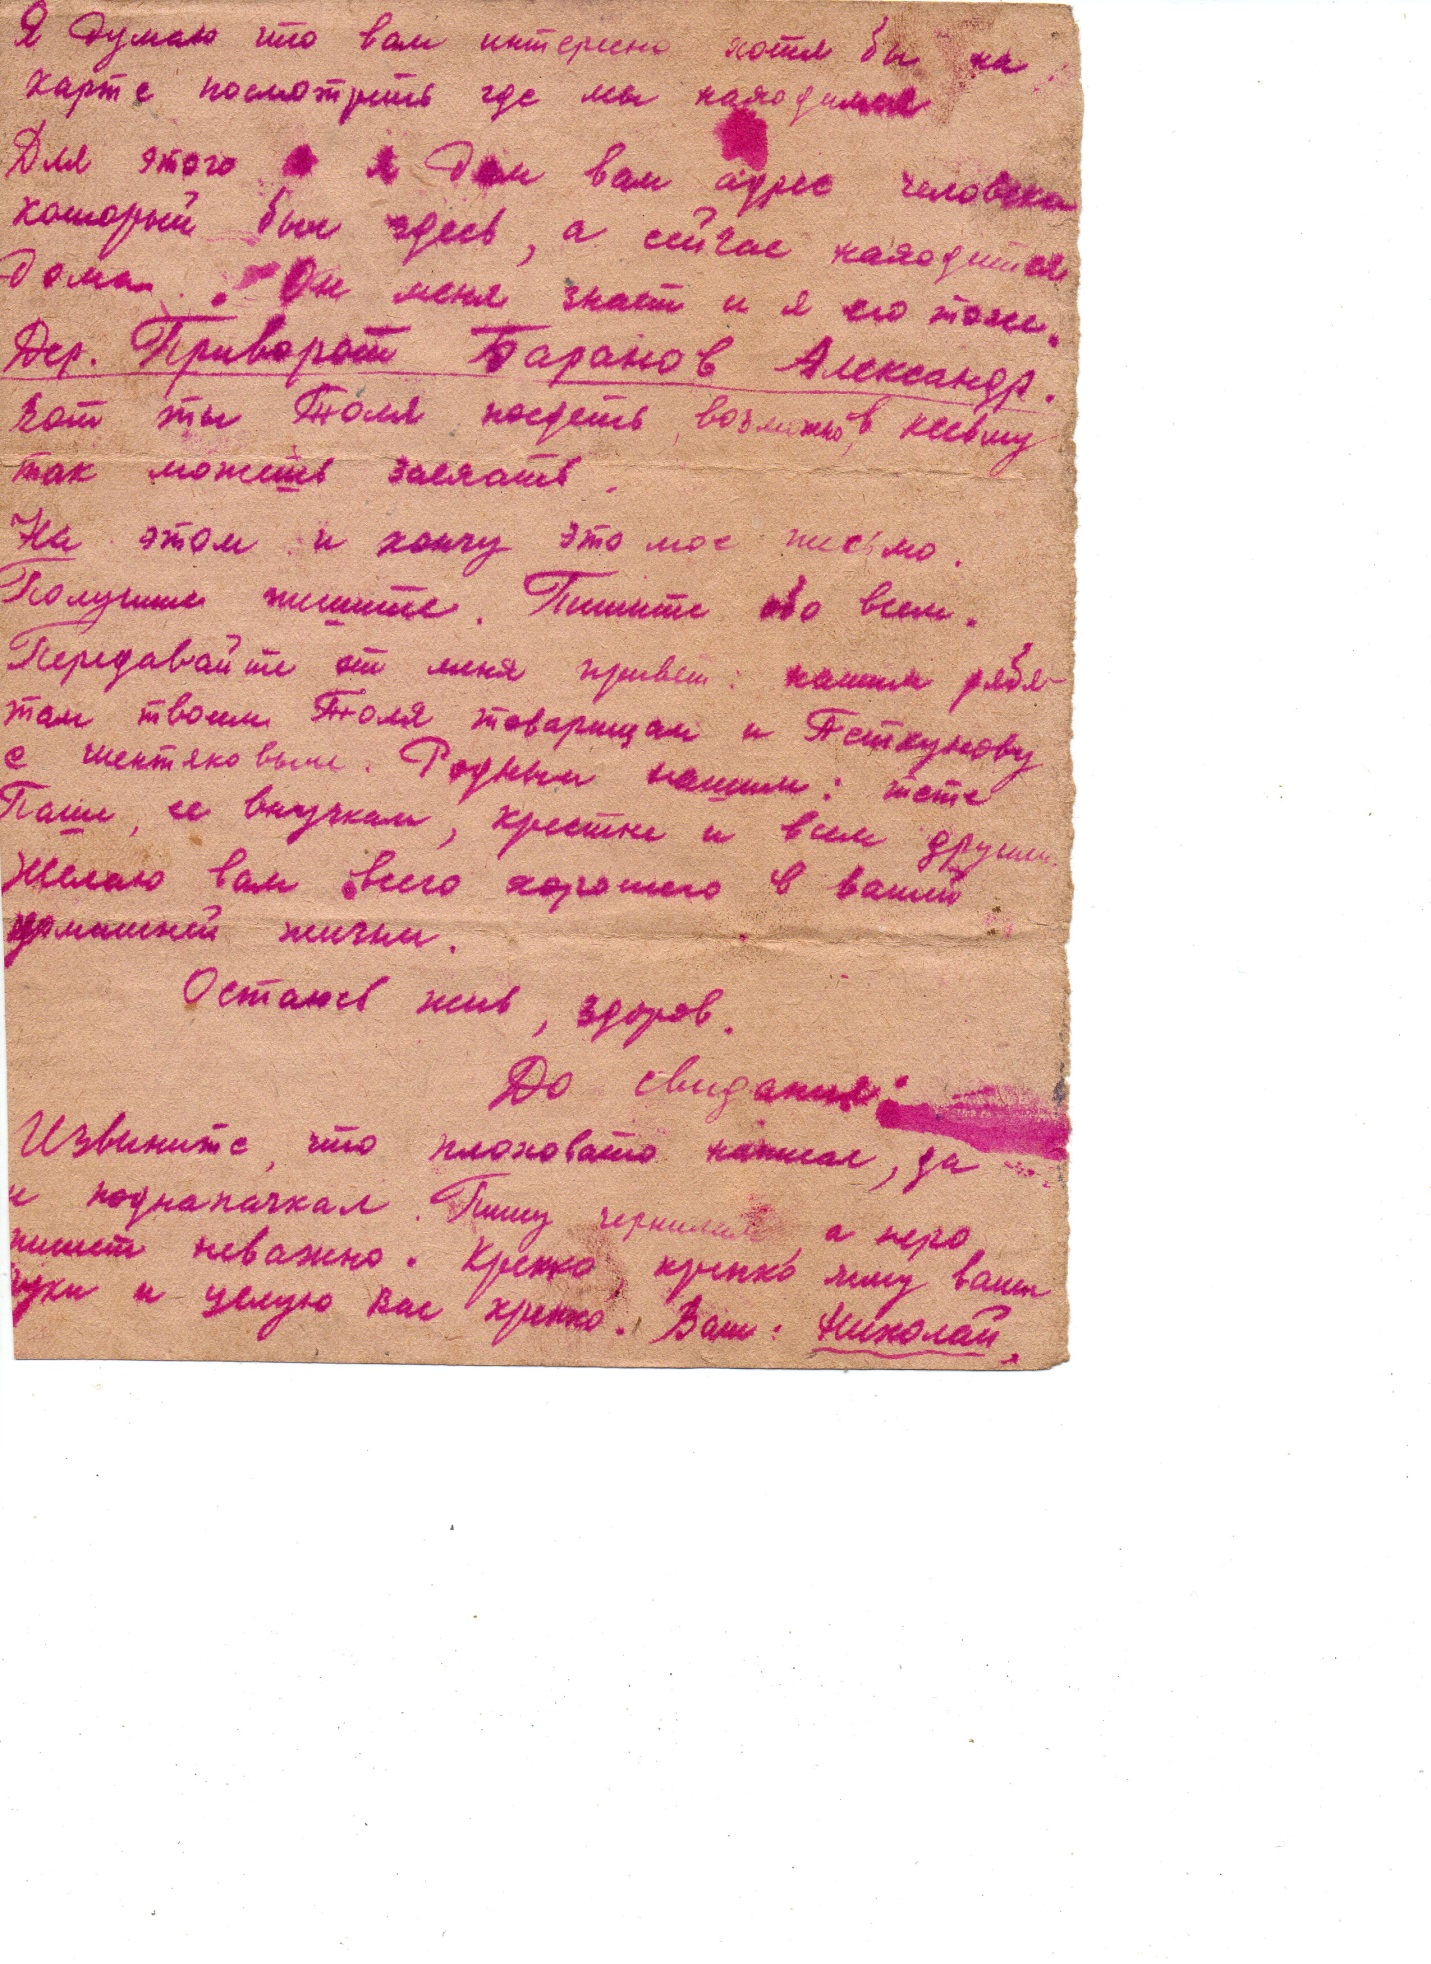 Я думаю что вам интересно хотя бы на
карте посмотреть где мы находимся
Для этого я дам вам адрес человека
который был здесь, а сейчас находится
дома. Он меня знает и я его тоже.
Дер. Приворот Баранов Александр.
Вот ты Толя поедешь, возможно, в
так можешь заехать.
На этом и кончу это мое письмо.
Получили пишите. Пишите обо всем.
Передавайте от меня привет: нашим ребя-
там твоим Толя товарищам и Петкунову
с Родным нашим: тете
Паше, ее внучкам, крестне и всем другим.
Желаю вам всего хорошего в вашей
домашней жизни.
Остаюсь жив, здоров.
До свидания:
Извините, что плоховато написал, да
и поднапачкал. Пишу чернилами, а перо
пишет неважно. Крепко крепко жму ваши
руки и целую вас крепко. Ваш: Николай.